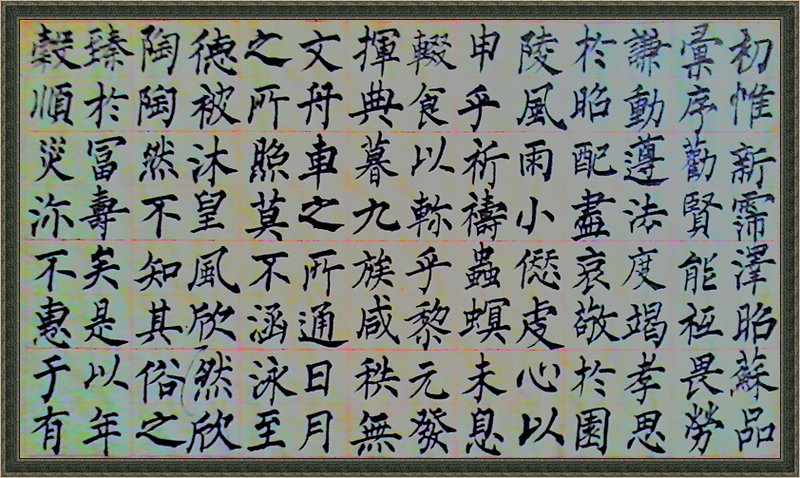 初惟新霈澤昭蘇品
彙序勸賢能祗畏勞
謙動遵法度竭孝思
於昭配盡哀敬於園
陵風雨小愆虔心以
申乎祈禱蟲螟未息
輟食以軫乎黎元發
揮典暮九族咸秩無
文舟車之所通日月
之所照莫不涵泳至
德被沐皇風欣然欣
陶陶然不知其俗之
臻於冨壽矣是以年
穀順災沴不惠于有